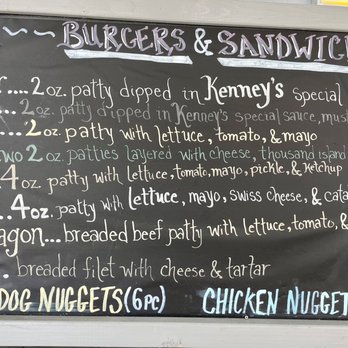 ~~ BURGERS & SANDWIC
....2 oz. patty dipped in Kenney's special
..2 oz. patty dipped in Kenney's special sauce, must
...2 oz. patty with lettuce, tomato, & mayo
two 2 oz. patties layered with cheese, thousand island
4 oz. patty with lettuce, tomato, mayo, pickle, & ketchup
..4 oz. patty with lettuce, mayo, swiss cheese, & cata
agon... breaded beef patty with lettuce, tomato, &
.. breaded filet with cheese & tartar
DOG NUGGETS (6pc) CHICKEN NUGGET